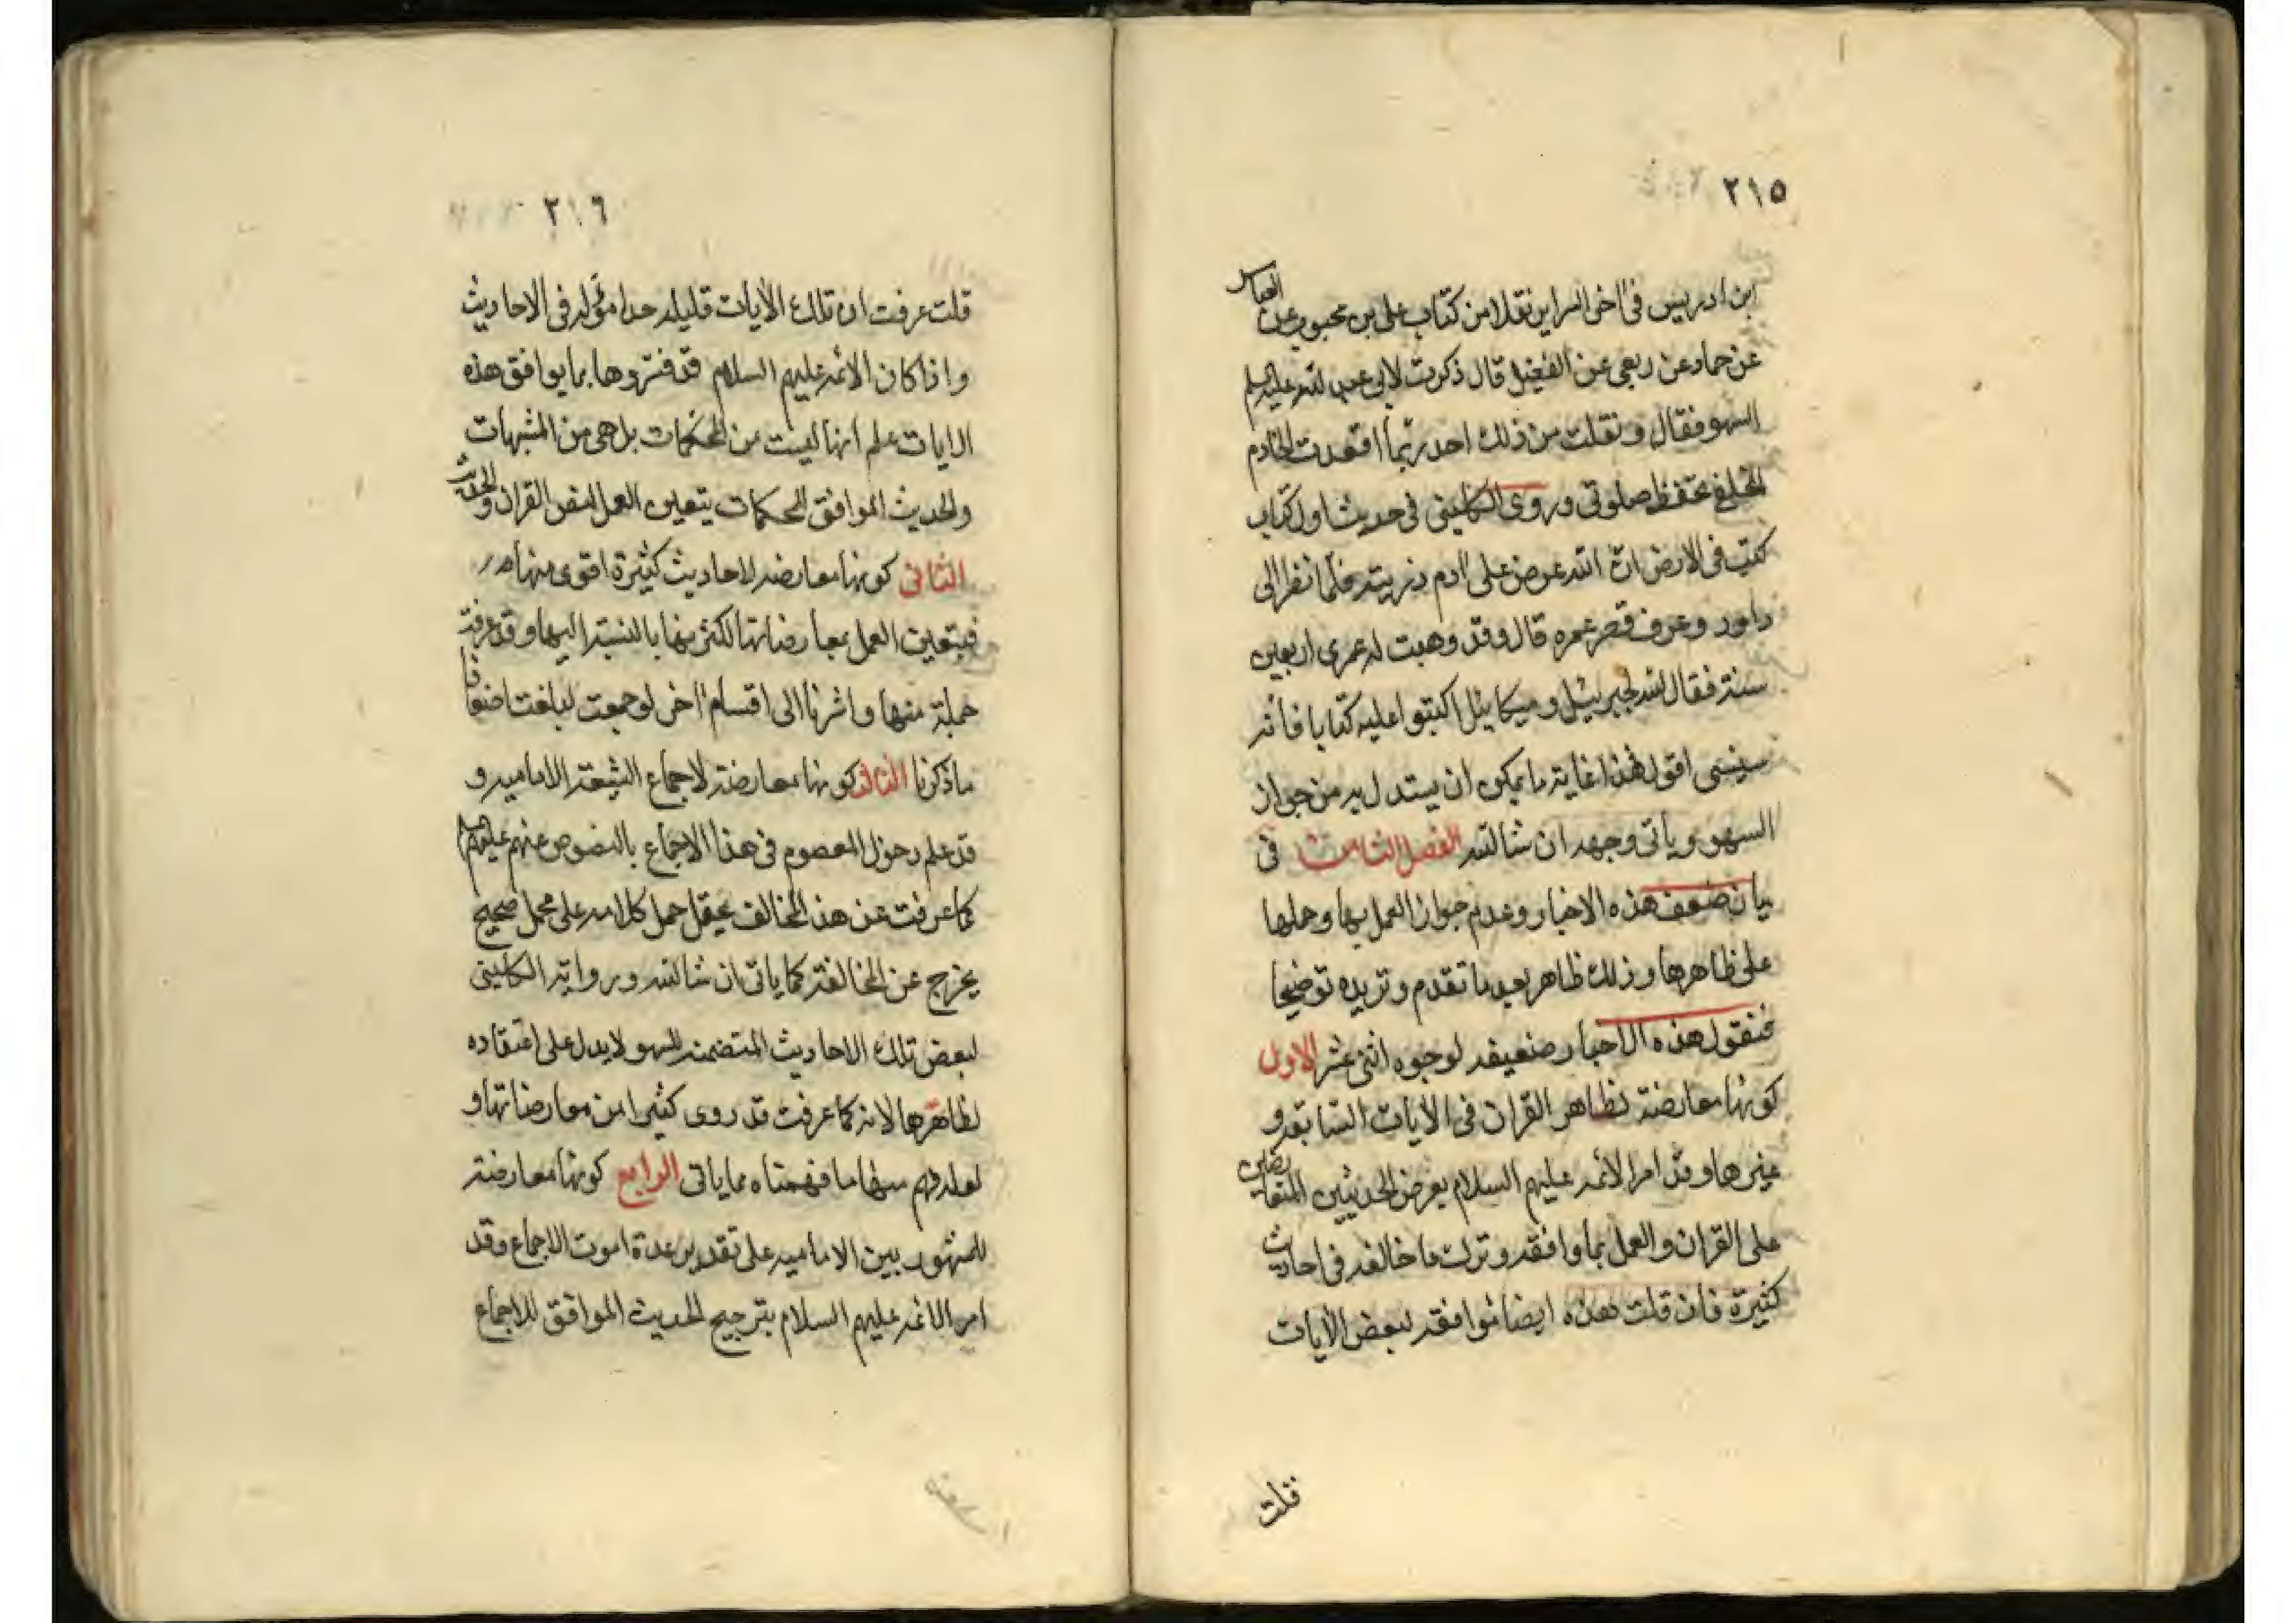 ٢١٥
ابن ادريس في آخر السراير نقلا من كتاب علي بن محبوب عن العباس
عن حماد عن ربعي عن الفضيل قال ذكرت لابي عبد الله عليه السلم
السهو فقال وتفلت من ذلك احد ربما اقعدت الخادم
خلفي تحفظ صلوتي وروى الكليني في حديث اول كتاب
كتب في الارض ان الله عرض على آدم ذريته فلما نظر الى
داود وعرف قصر عمره قال وقد وهبت له عمرى اربعين
سنة فقال الله لجبرئيل وميكائيل اكتبوا عليه كتابا فانه
سينسى اقول هذا غاية ما يمكن ان يستدل به من جواز
السهو ويأتي وجهه ان شا الله الفصل الثامن في
بيان ضعف هذه الاخبار وعدم جواز العمل بها وحملها
على ظاهرها وذلك ظاهر بعد ما تقدم ونزيده توضيحا
فنقول هذه الاخبار ضعيفه لوجوه اثنى عشر الاول
كونها معارضة لظاهر القران في الآيات السابقه و
غيرها وقد امر الائمه عليهم السلام بعرض الحديثين المتعارضين
على القران والعمل بما وافقه وترك ما خالفه في احاديث
كثيرة فان قلت هذه ايضا موافقه لبعض الآيات
قلت
٢١٦
قلت عرفت ان تلك الآيات قليله جدا مؤوله في الاحاديث
واذا كان الائمه عليهم السلام قد فسروها بما يوافق هذه
الايات علم انها ليست من المحكمات بل هي من المتشبهات
والحديث الموافق للمحكمات يتعين العمل بنص القران والحديث
الثاني كونها معارضه لاحاديث كثيرة اقوى منها
فيتعين العمل بمعارضاتها لكثرتها بالنسبة اليها وقد عرفت
جملة منها واشرنا الى اقسام آخر لو جمعت لبلغت اضعاف
ما ذكرنا الثالث كونها معارضة لاجماع الشيعة الاماميه و
قد علم دخول المعصوم في هذا الاجماع بالنصوص عنهم عليهم السلم
كما عرفت عن هذ المخالف يحتمل حمل كلامه على محمل صحيح
يخرج عن المخالفة كما ياتي ان شا الله ورواية الكليني
لبعض تلك الاحاديث المتضمنه للسهو لا يدل على اعتقاده
لظاهرها لانه كما عرفت قد روى كثيرا من معارضاتها و
لعله فهم منها ما فهمناه مما ياتي الرابع كونها معارضة
للمشهور بين الاماميه على تقدير عدة اموت الاجماع وقد
امر الائمه عليهم السلام بترجيح الحديث الموافق للاجماع